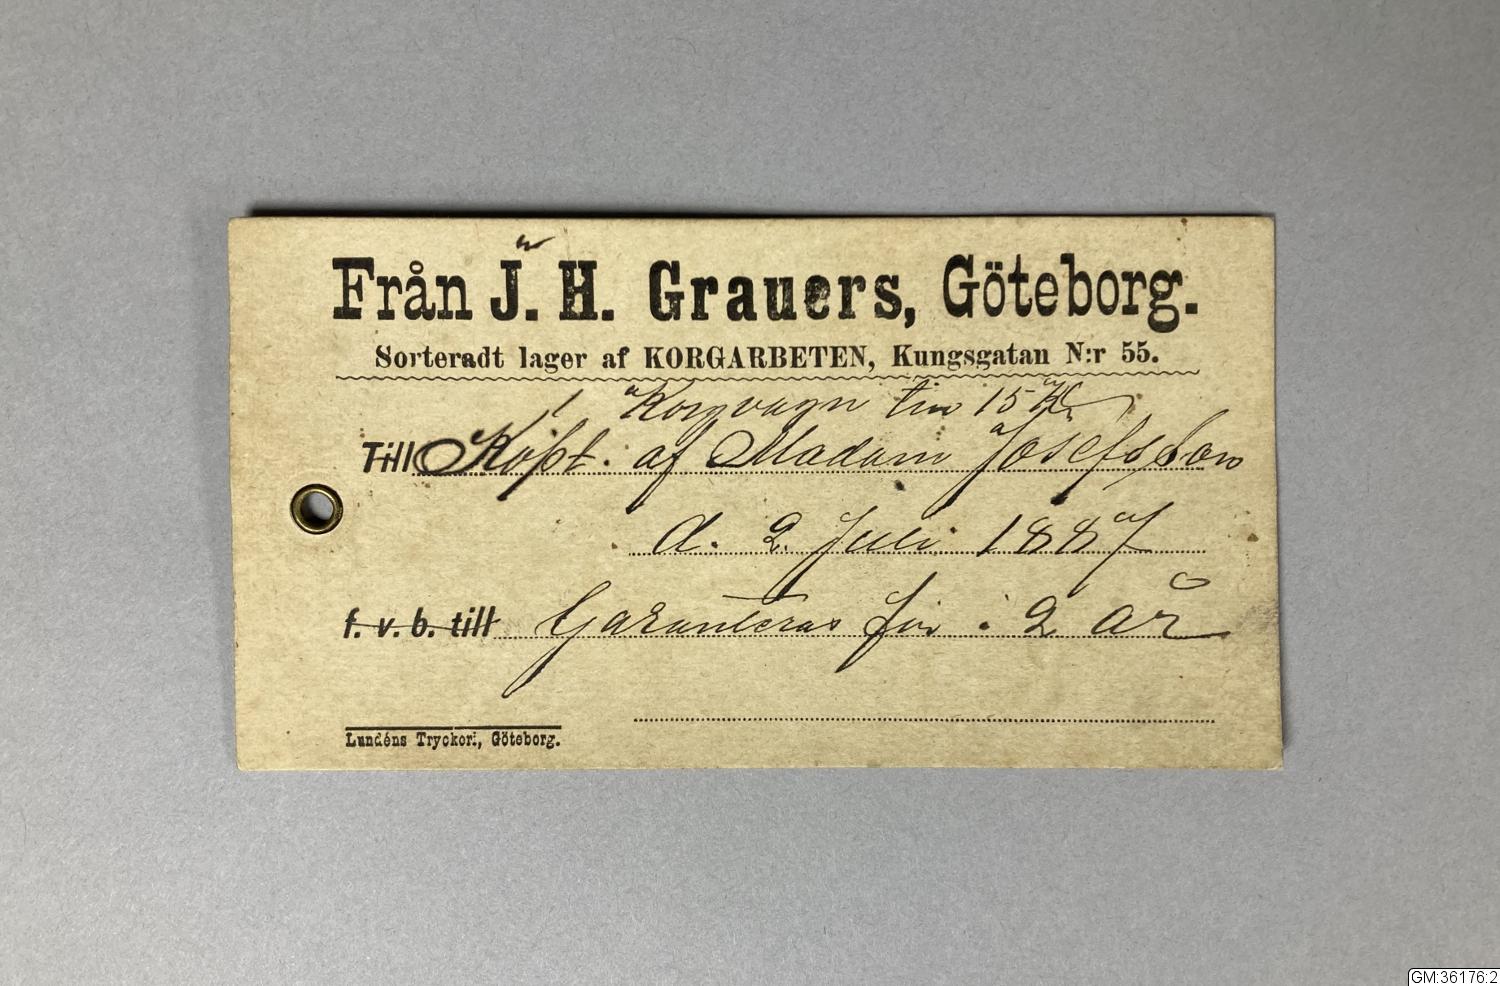 Från J. H. Grauers, Göteborg.
Sorteradt lager af KORGARBETEN, Kungsgatan N:r 55.
Korgvagn 15 Kr
Till Köpt. af Madam Josefsson
d. 2 Juli 1887
f. v. b. till Garanteras för 2 år
Lundéns Tryckeri, Göteborg.
GM:36176:2